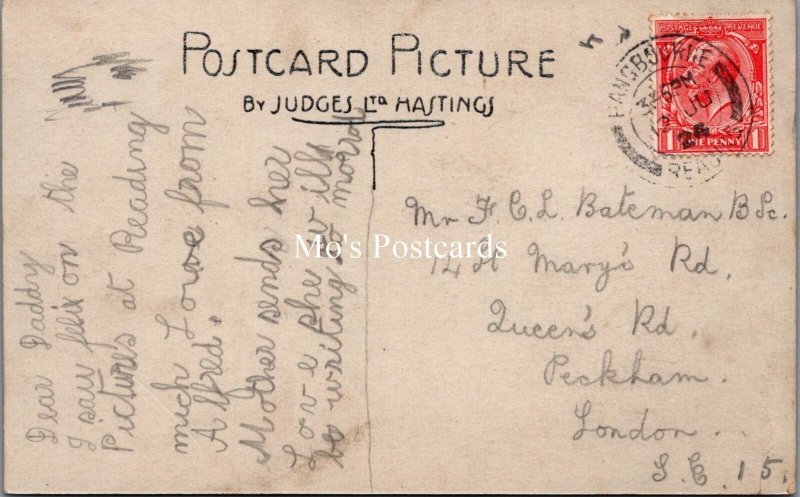 POSTCARD PICTURE
BY JUDGES LTD HASTINGS
POSTAGE REVENUE
ONE PENNY
1 1
PANGBOURNE
READ
Dear Daddy
I saw felix on the
Pictures at Reading
much Love from
Alfred.
Mother sends her
Love she will
be writing to morrow
Mr F. C. L. Bateman B Sc.
14 St Mary's Rd,
Queen's Rd.
Peckham.
London.
S. E. 15.
Mo's Postcards